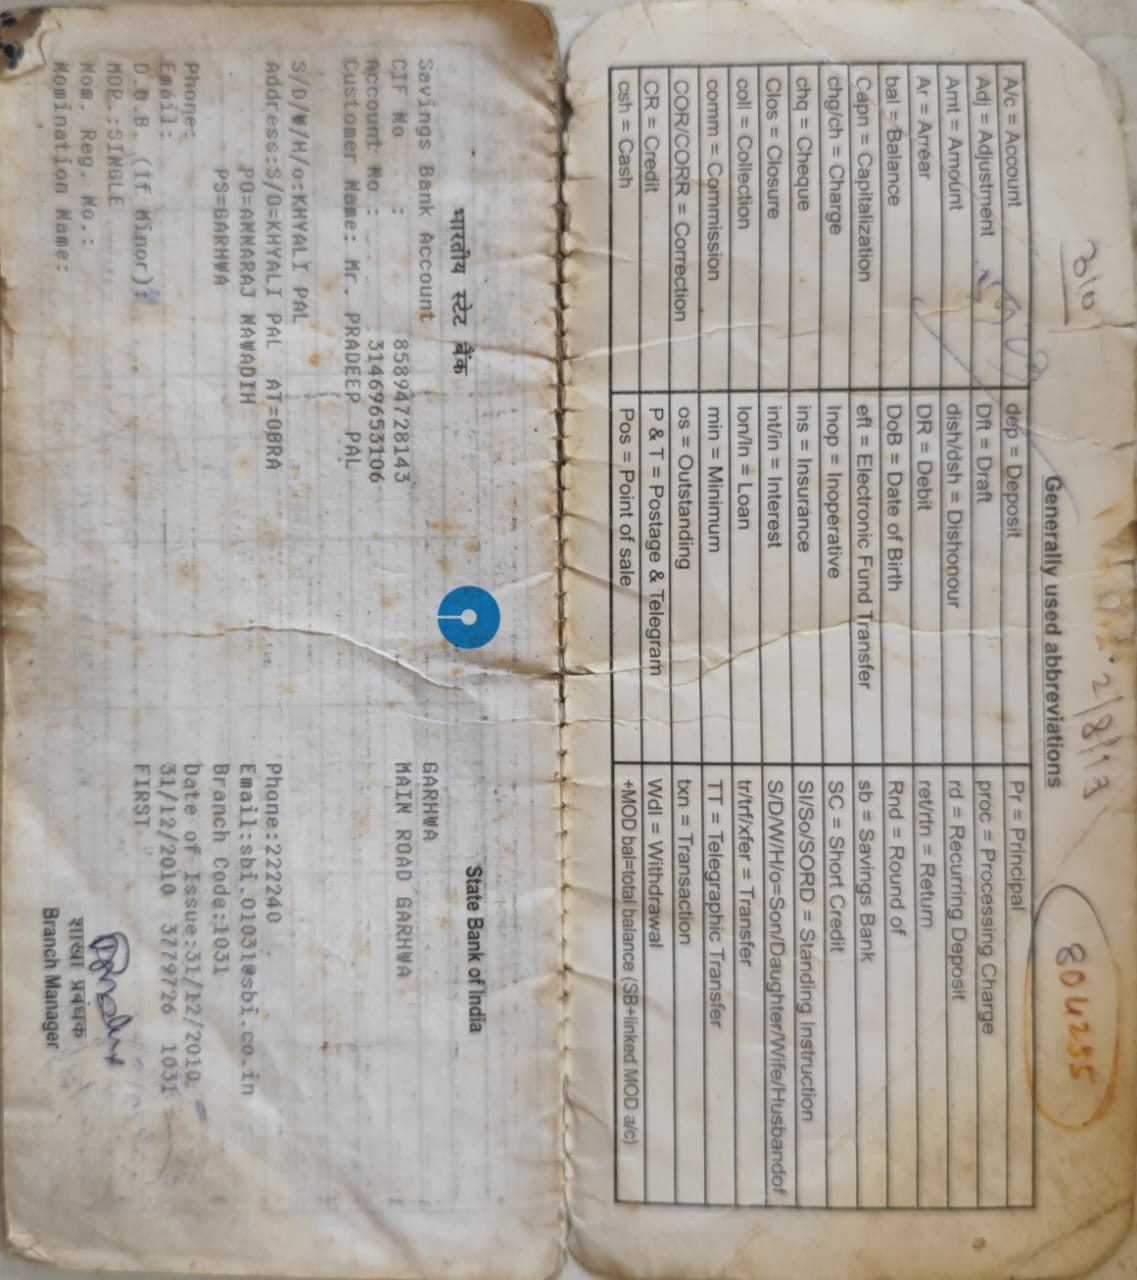 310
2/8/13
804255
Generally used abbreviations
A/c = Account	dep = Deposit	Pr = Principal
Adj = Adjustment	Dft = Draft	proc = Processing Charge
Amt = Amount	dish/dsh = Dishonour	rd = Recurring Deposit
Ar = Arrear	DR = Debit	ret/rtn = Return
bal = Balance	DoB = Date of Birth	Rnd = Round of
Capn = Capitalization	eft = Electronic Fund Transfer	sb = Savings Bank
chg/ch = Charge	Inop = Inoperative	SC = Short Credit
chq = Cheque	ins = Insurance	SI/So/SORD = Standing Instruction
Clos = Closure	int/in = Interest	S/D/W/H/o=Son/Daughter/Wife/Husbandof
coll = Collection	lon/ln = Loan	tr/trf/xfer = Transfer
comm = Commission	min = Minimum	TT = Telegraphic Transfer
COR/CORR = Correction	os = Outstanding	txn = Transaction
CR = Credit	P & T = Postage & Telegram	Wdl = Withdrawal
csh = Cash	Pos = Point of sale	+MOD bal=total balance (SB+linked MOD a/c)
भारतीय स्टेट बैंक	State Bank of India
Savings Bank Account	GARHWA
CIF No : 85894728143	MAIN ROAD GARHWA
Account No : 31469653106
Customer Name: Mr. PRADEEP PAL
S/D/W/H/o:KHYALI PAL
Address:S/O=KHYALI PAL AT=OBRA	Phone:222240
PO=ANNARAJ NAWADIH	Email:sbi.01031@sbi.co.in
PS=GARHWA	Branch Code:1031
Phone:	Date of Issue:31/12/2010
Email:	31/12/2010 3779726 1031
D.O.B. (if Minor):	FIRST
MOP.:SINGLE
Nom. Reg. No.:	शाखा प्रबंधक
Nomination Name:	Branch Manager